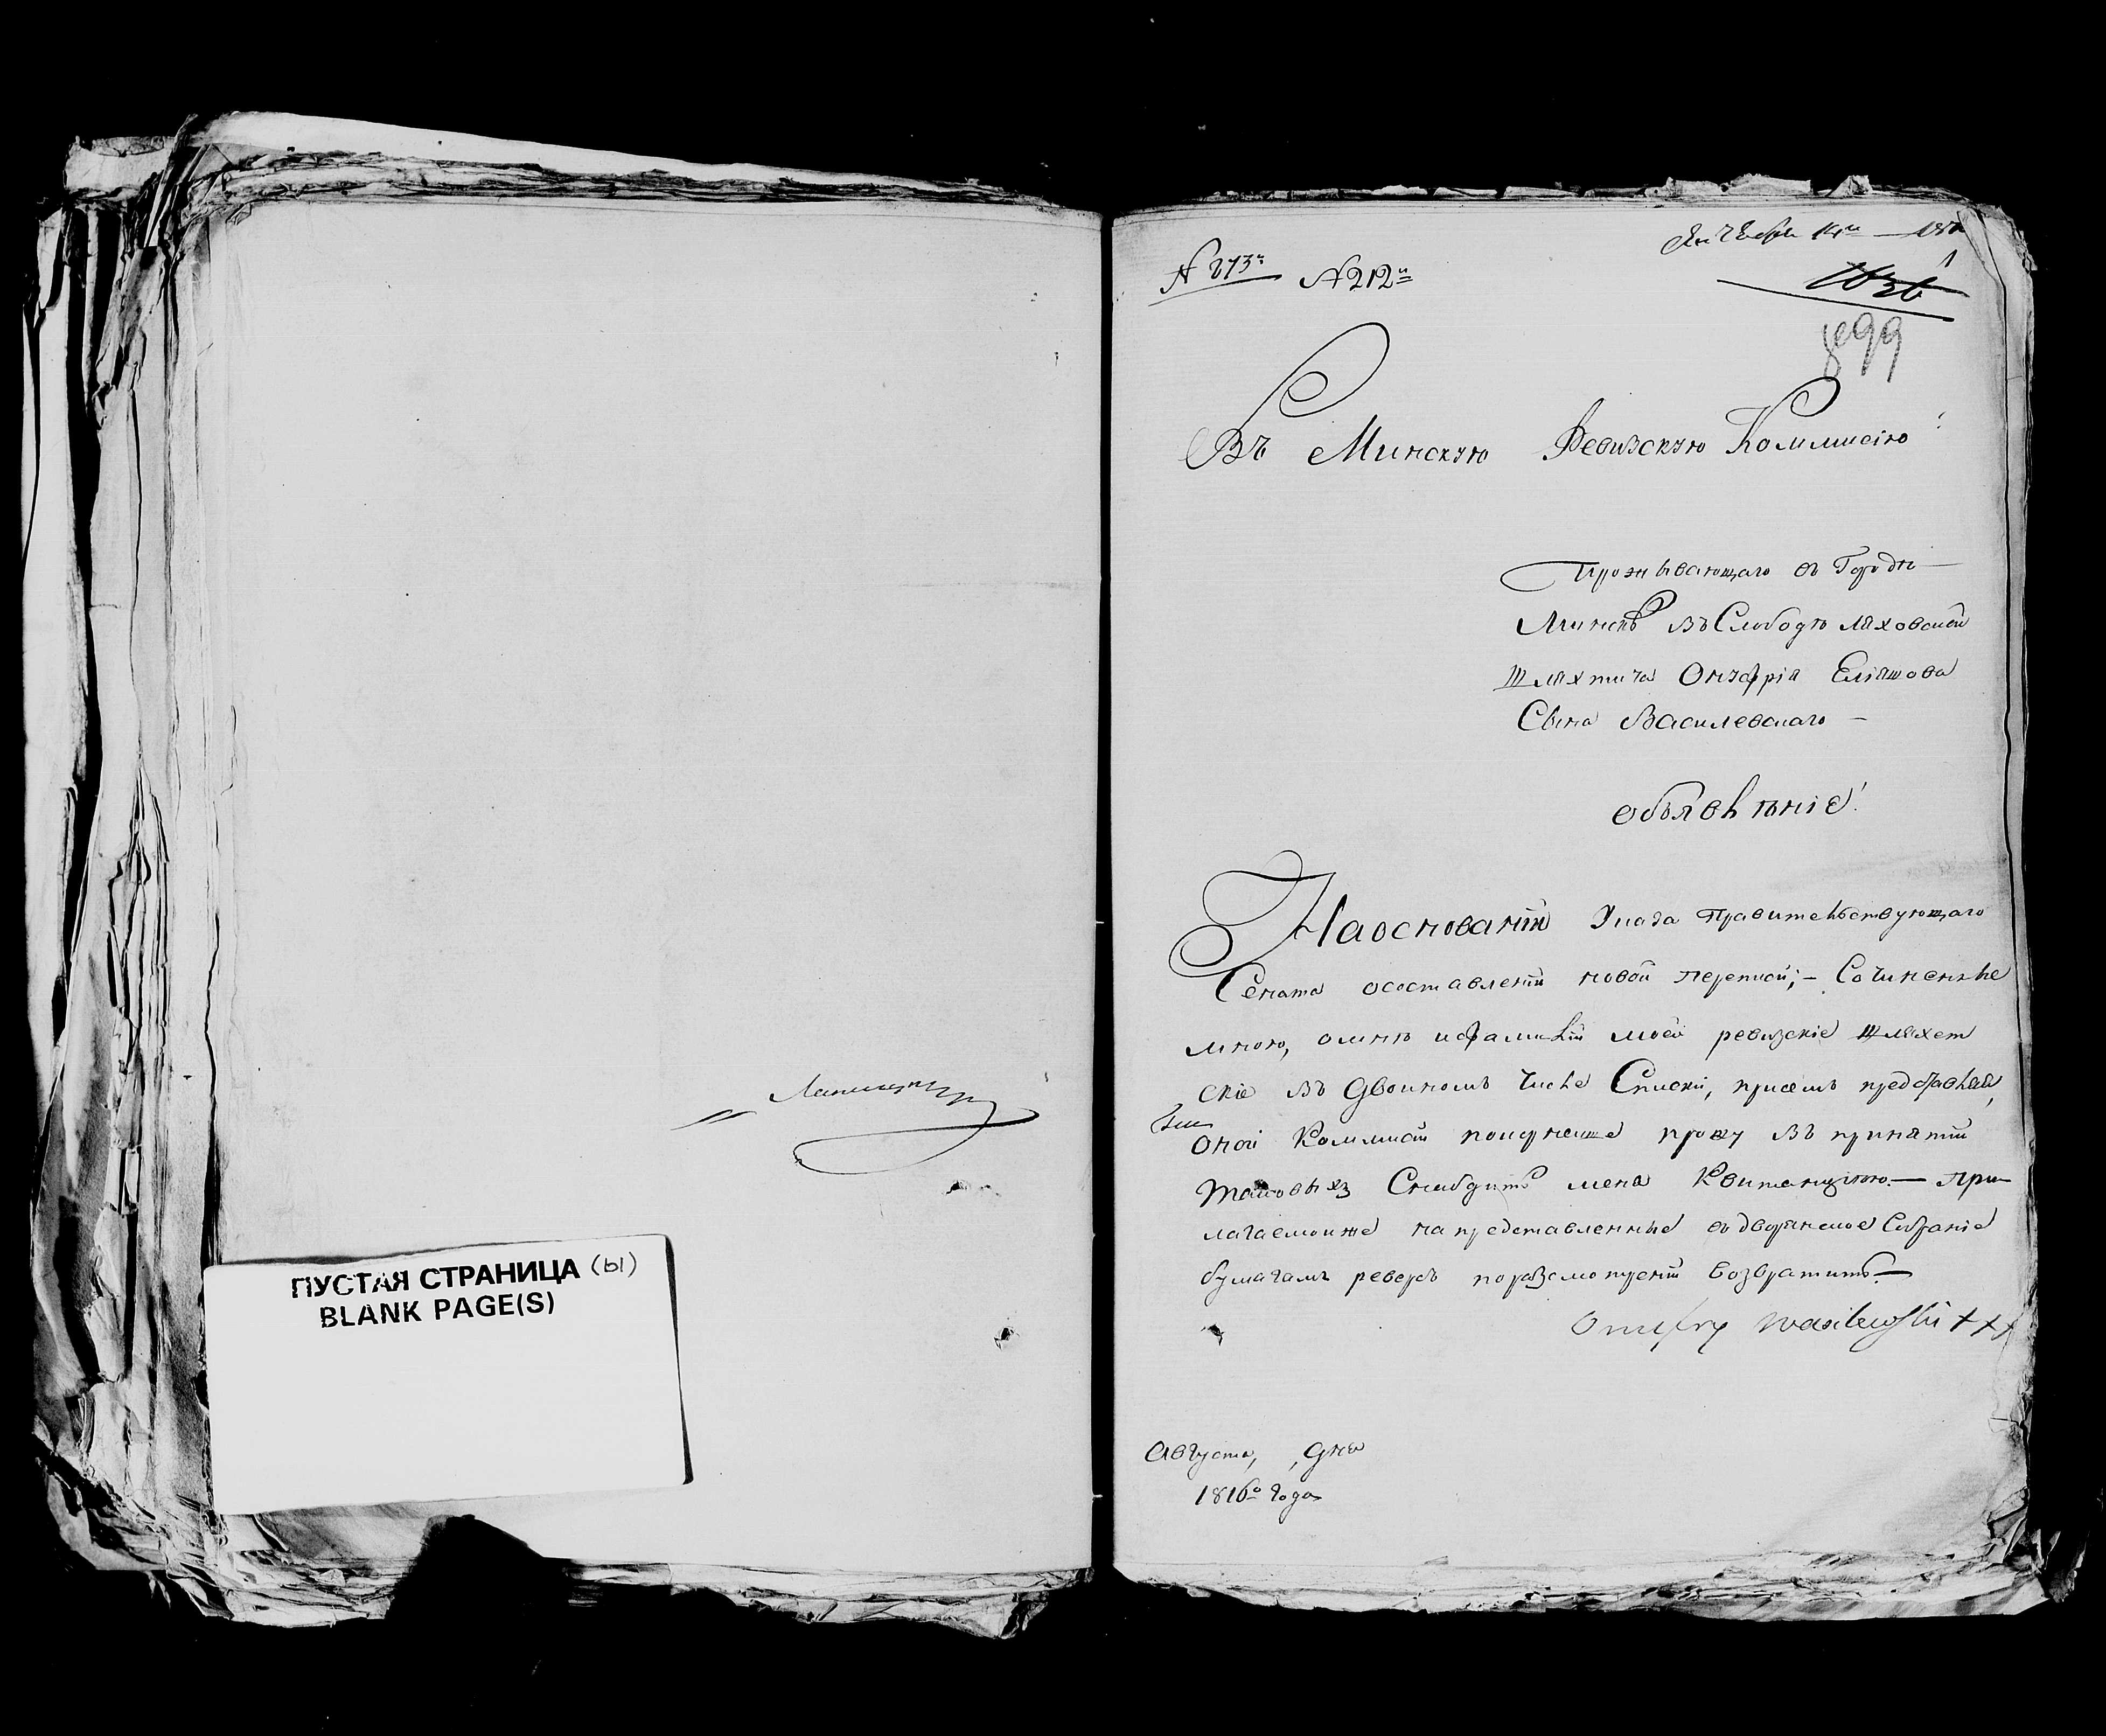 ПУСТАЯ СТРАНИЦА (ы)
BLANK PAGE(S)
№ 273й № 212й
899
Въ Минскую Ревизскую Коммисію
Проживающаго въ Городѣ
Минскѣ въ Слободѣ Ляховской
Шляхтича Онуфрія Еліяшова
Сына Василевскаго —
Объявлѣніе!
На основаніи Указа Правительствующаго
Сената о составленіи новой переписи; — Сочиненные
мною, о мнѣ и фамиліи моей ревизскіе Шляхет
скіе въ двойномъ числе Списки, присемъ представляя,
оной Коммисіи покорнейше прошу въ принятіи
таковыхъ Снабдить меня Квитанціею. — При
лагаемоиже на представленные въ дворянское Собраніе
бумагамъ реверсъ по разсмотреніи возвратить —
Onufry Wasilewski +++
Августа, , дня
1816го года